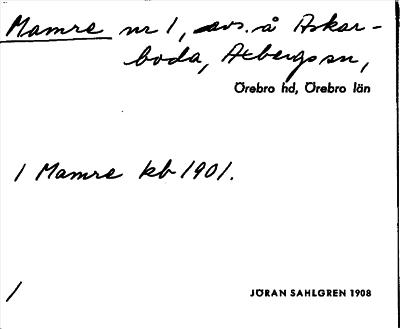 Mamre nr 1, avs. å Askar-
boda, Axbergs sn,
Örebro hd, Örebro län
/ Mamre kb 1901.
/
JÖRAN SAHLGREN 1908